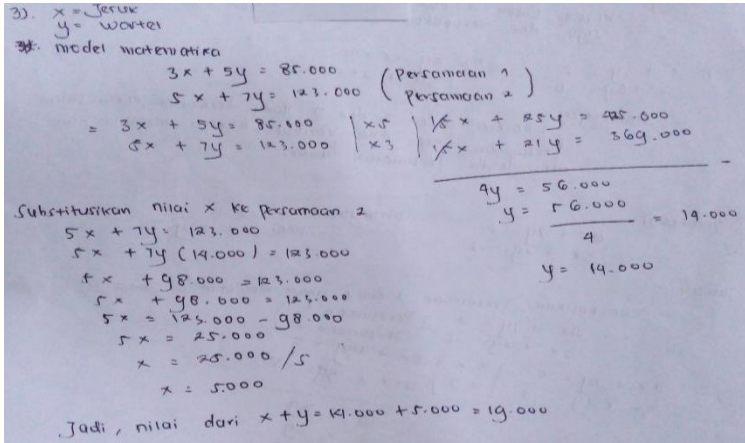 3). x = Jeruk
y = wortel
model matematika
3x + 5y = 85.000 ( Persamaan 1
5x + 7y = 123.000 ( Persamaan 2 )
= 3x + 5y = 85.000 | x5 | 15x + 25y = 425.000
5x + 7y = 123.000 | x3 | 15x + 21y = 369.000
-
4y = 56.000
y = 56.000 / 4 = 14.000
y = 14.000
Substitusikan nilai x ke persamaan 2
5x + 7y = 123.000
5x + 7y (14.000) = 123.000
5x + 98.000 = 123.000
5x + 98.000 = 123.000
5x = 123.000 - 98.000
5x = 25.000
x = 25.000 /5
x = 5.000
Jadi, nilai dari x + y = 14.000 + 5.000 = 19.000